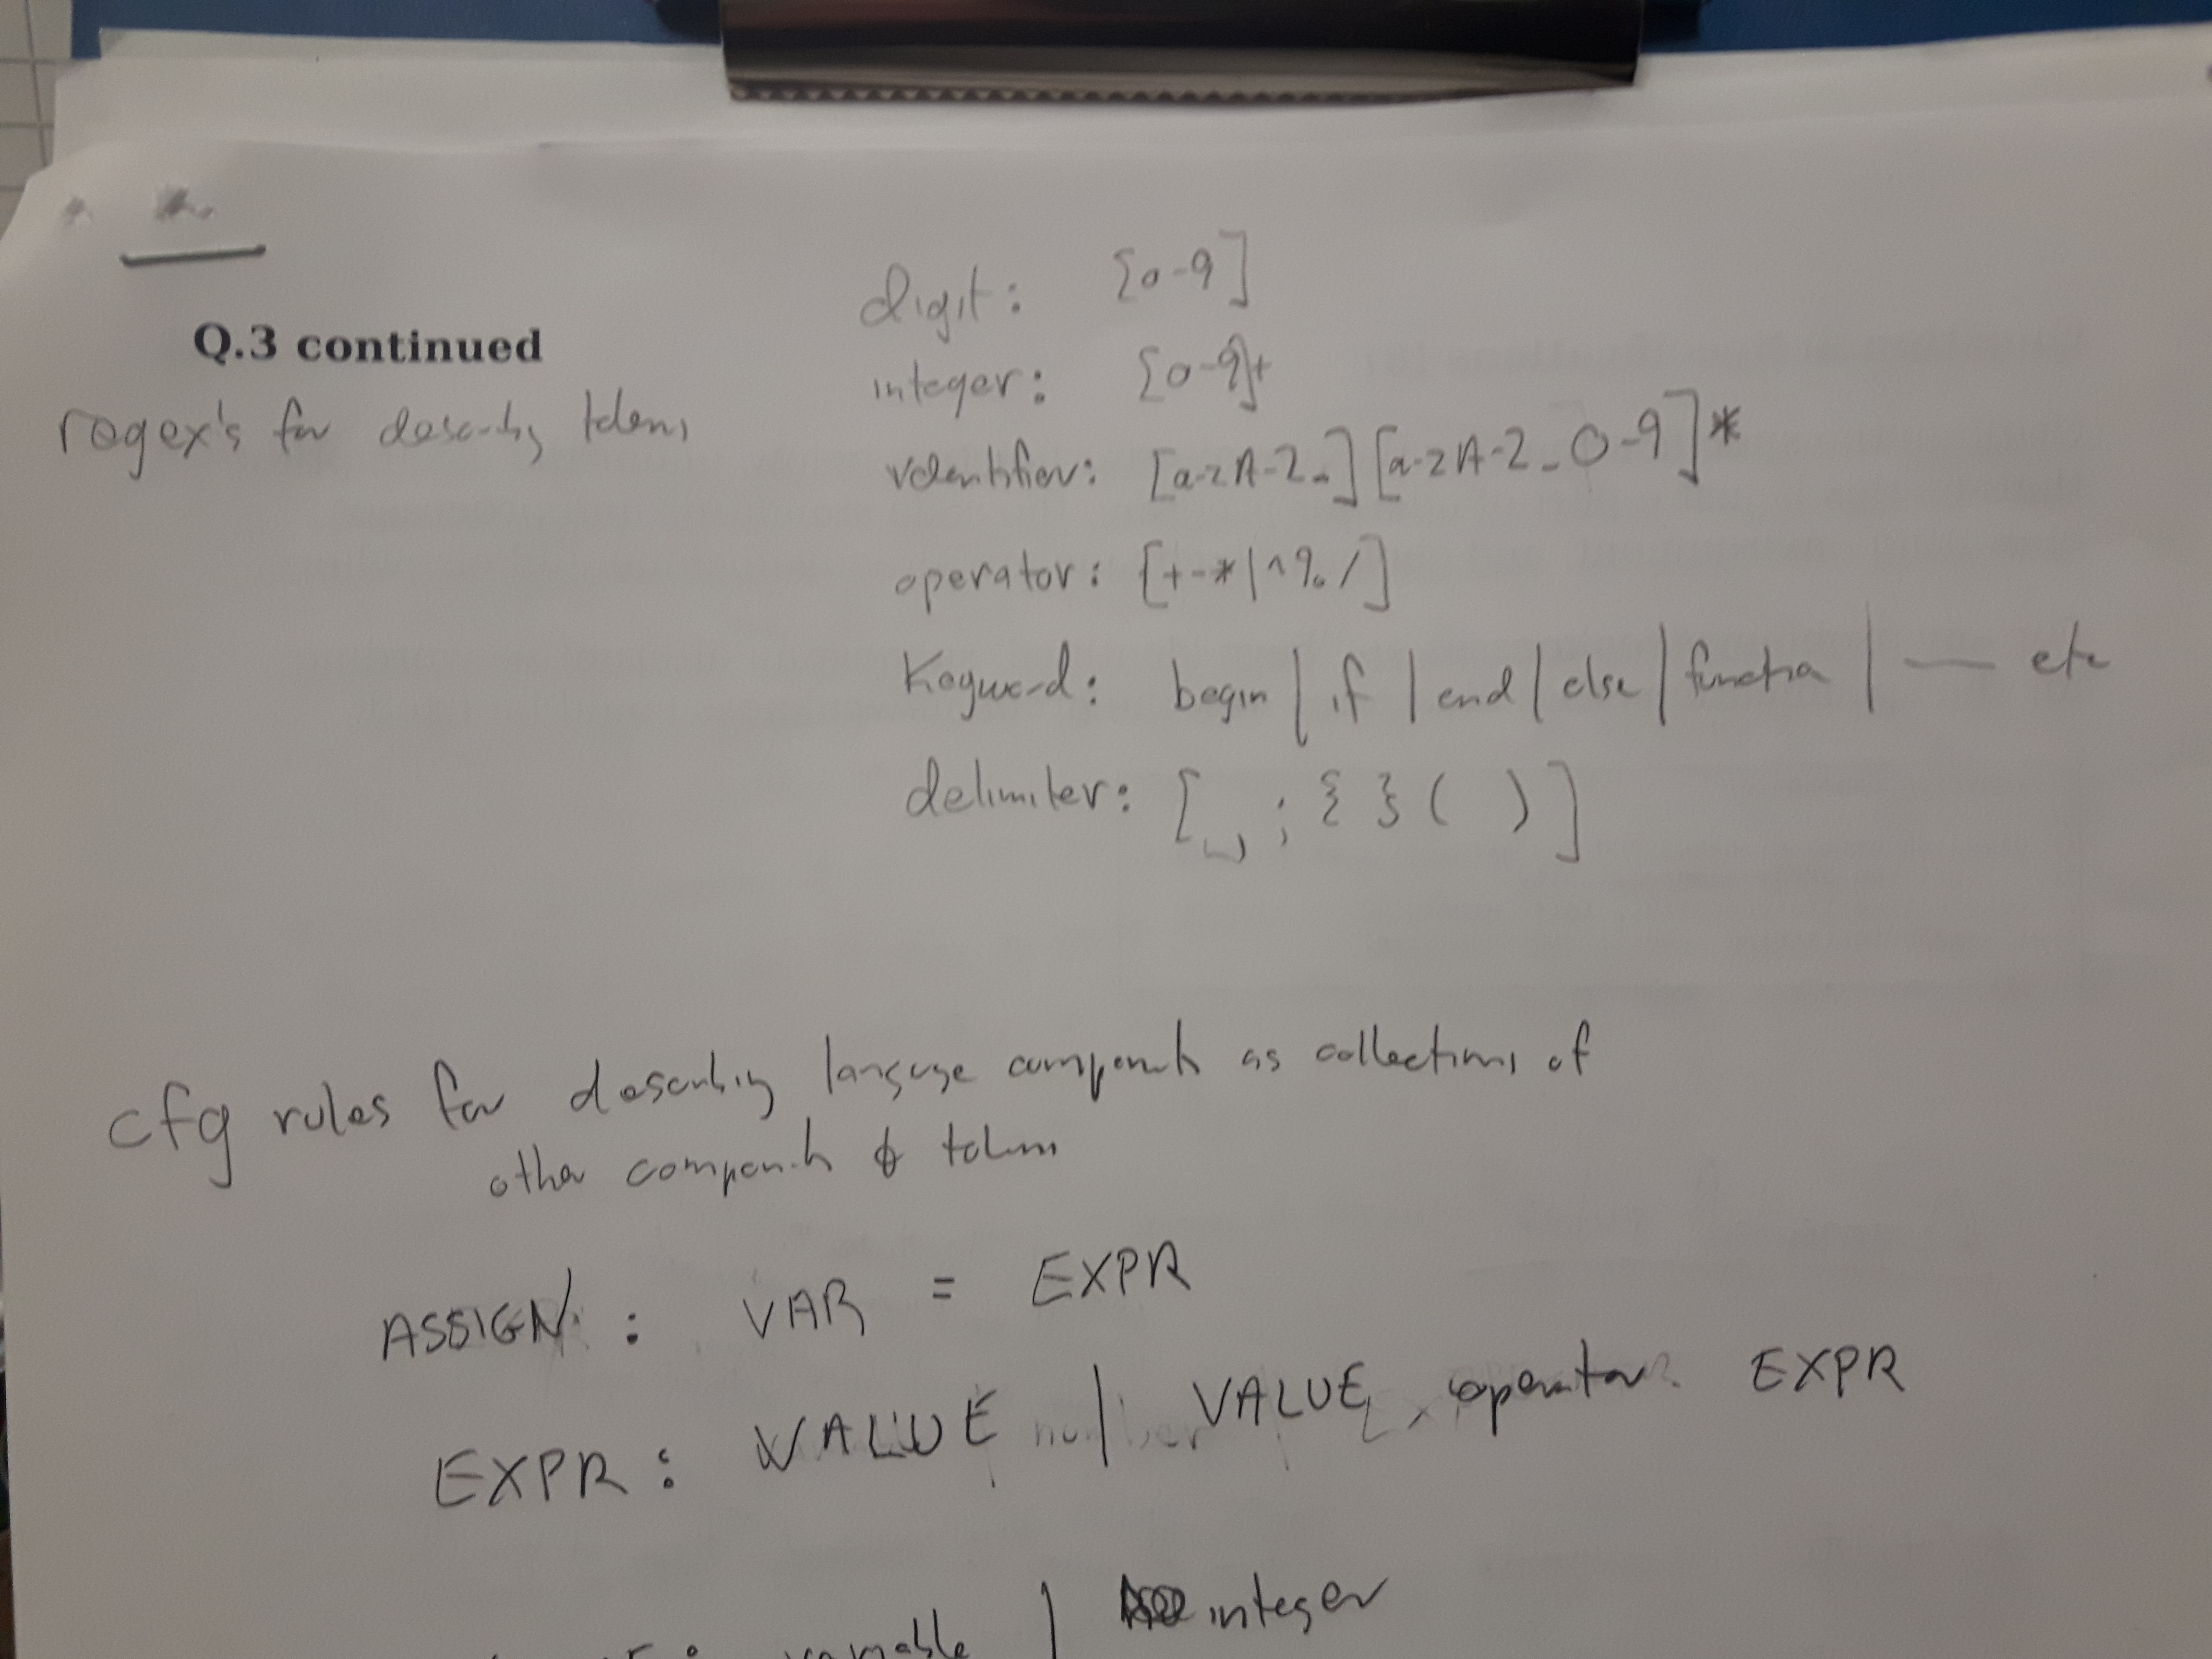 Q.3 continued
regex's for describing tokens
digit: [0-9]
integer: [0-9]+
identifier: [a-zA-Z_][a-zA-Z_0-9]*
operator: [+-*|^%/]
Keyword: begin | if | end | else | function | — etc
delimiter: [␣,;{}( )]
cfg rules for describing language components as collections of
other components & tokens
ASSIGN : VAR = EXPR
EXPR : VALUE | VALUE operator EXPR
: variable | integer